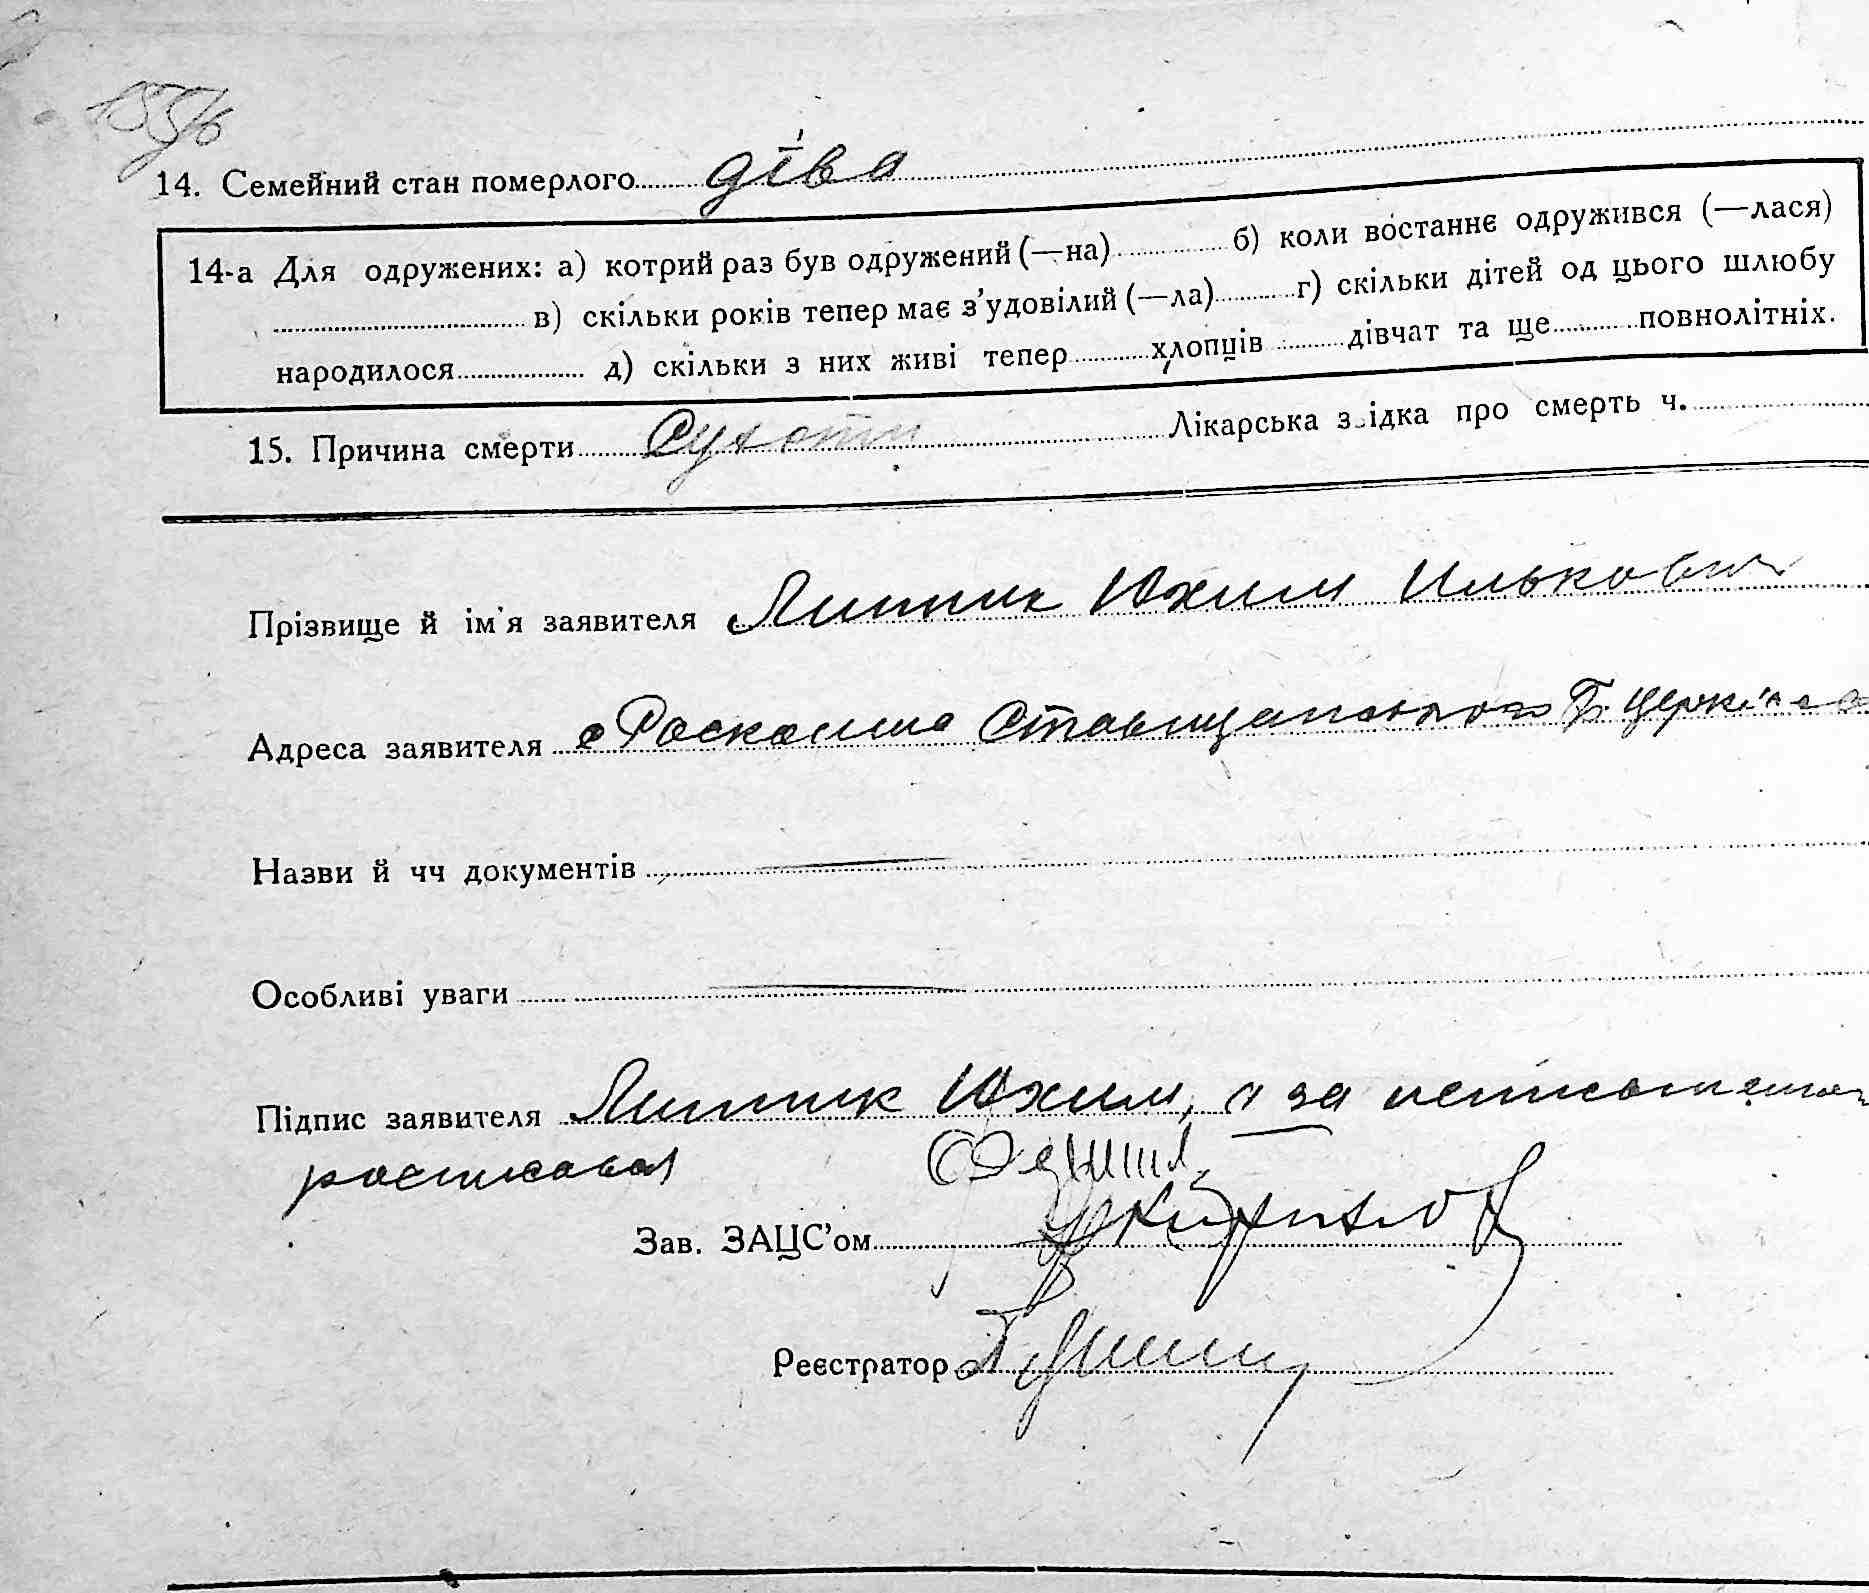 155/6
14. Семейний стан померлого діва
14-а Для одружених: а) котрий раз був одружений (—на) б) коли востаннє одружився (—лася)
в) скільки років тепер має з'удовілий (—ла) г) скільки дітей од цього шлюбу
народилося д) скільки з них живі тепер хлопців дівчат та ще повнолітніх.
15. Причина смерти Сухоти Лікарська з ідка про смерть ч.
Прізвище й ім'я заявителя Липник Юхим Илькович
Адреса заявителя с Роскошна Ставищанського Б. Церків
Назви й чч документів
Особливі уваги
Підпис заявителя Липник Юхим, а за неписьменного
росписався
Зав. ЗАЦС'ом
Реєстратор